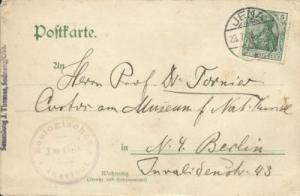 Postkarte.
JENA
5
An
Herrn Prof. Dr. Tornier
Custos am Museum f. Naturkunde
in N. 4. Berlin
Wohnung
(Straße und Hausnummer)
Invalidenstr. 43
Zoologisches
Institut
Jena
Sammlung J. Thomas,